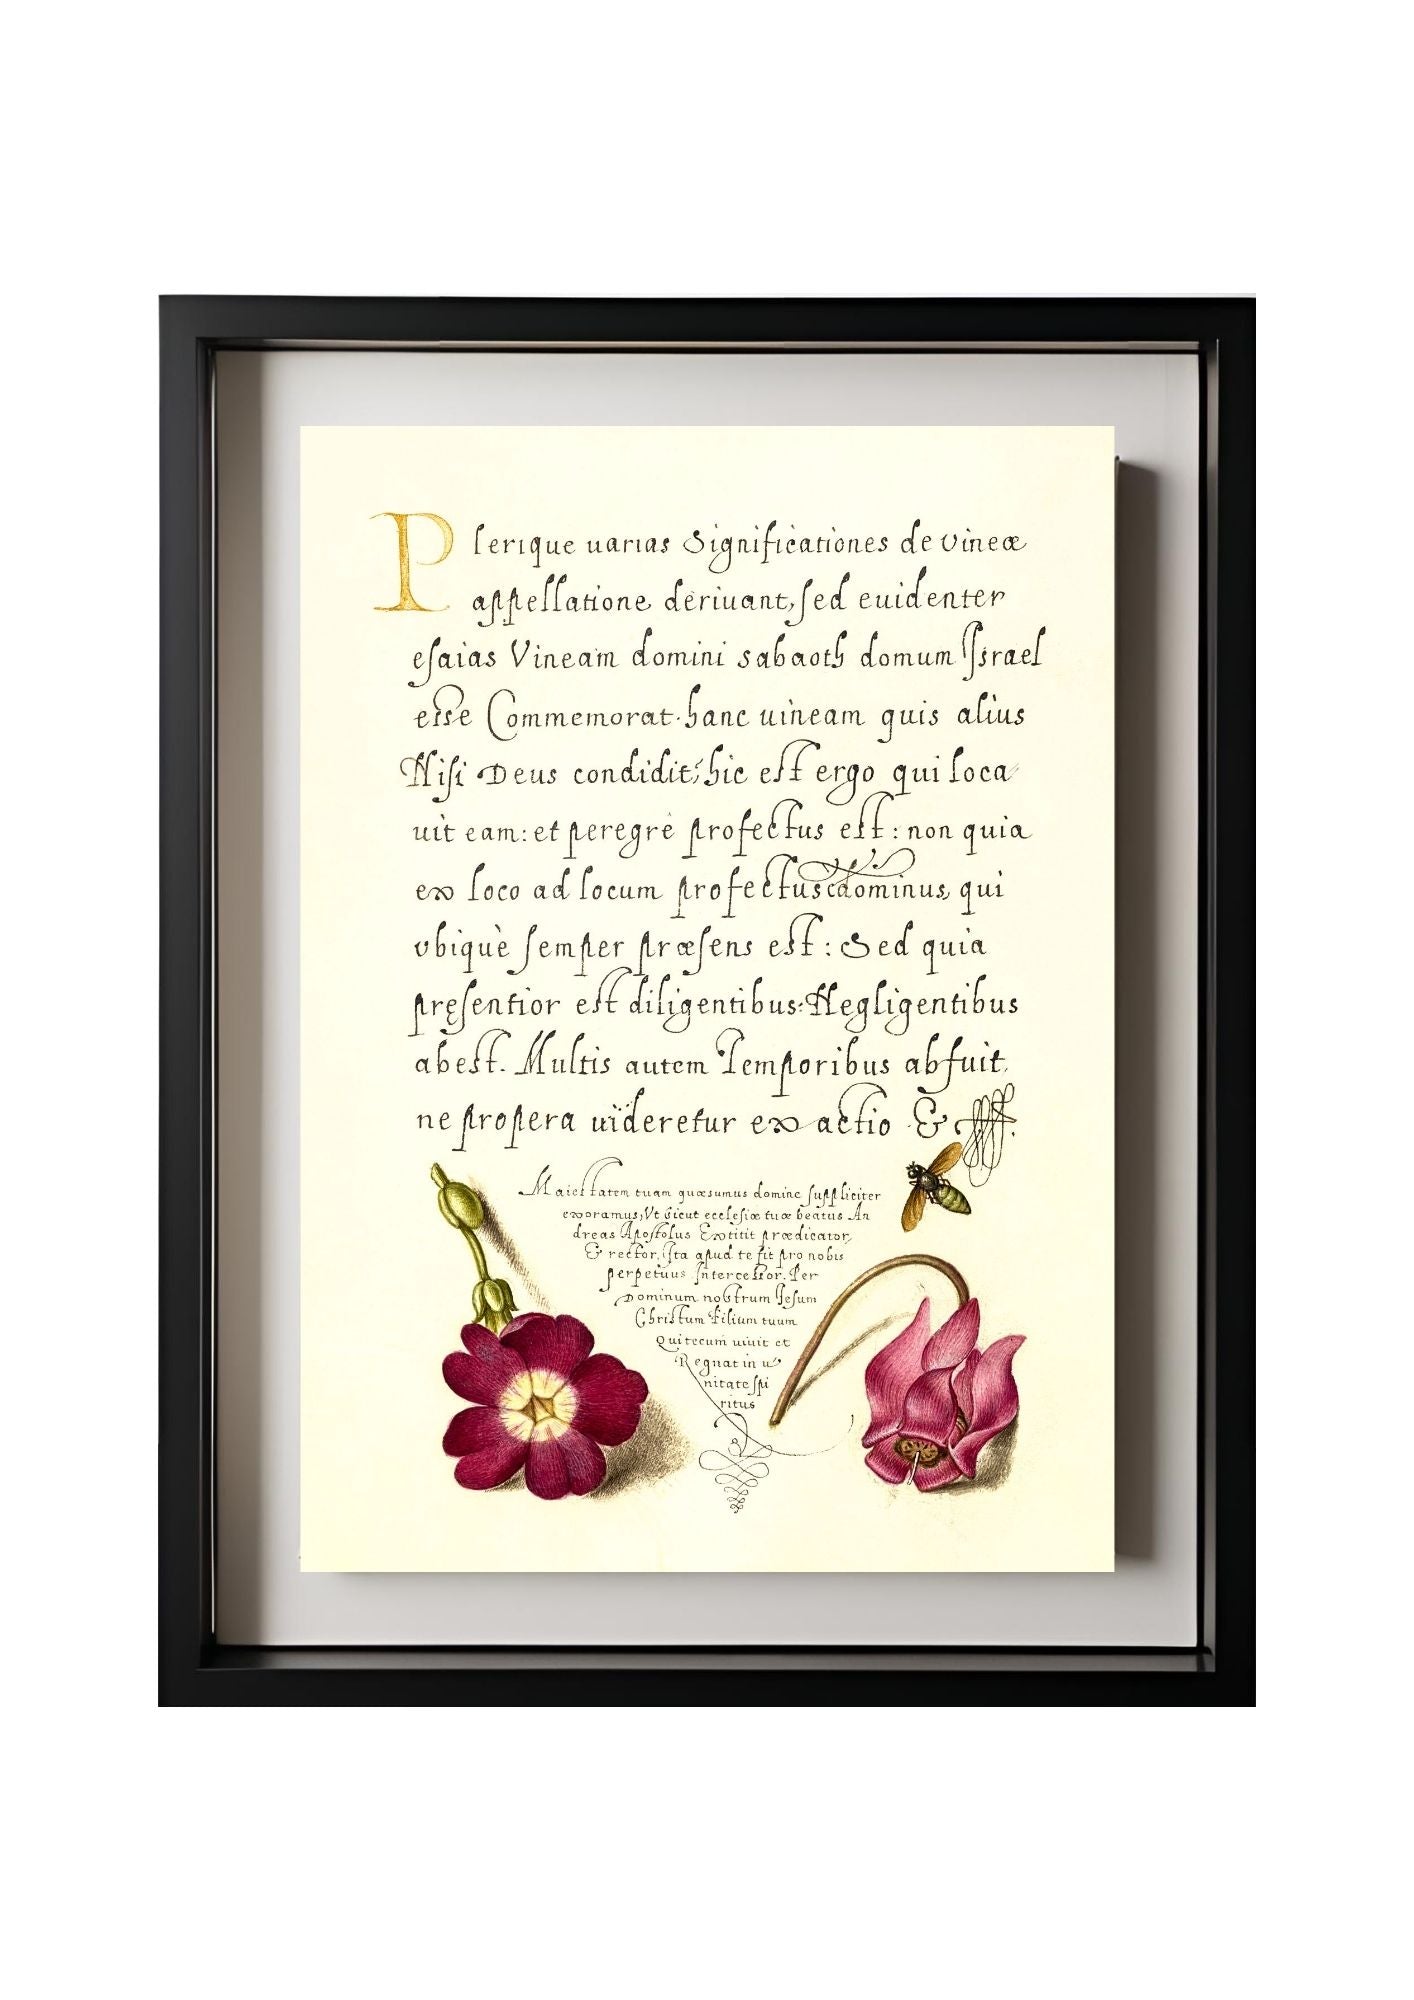 Plerique uarias Significationes de vineæ
appellatione deriuant, sed euidenter
esaias Vineam domini sabaoth domum Israel
esse Commemorat. hanc uineam quis alius
Nisi Deus condidit; hic est ergo qui loca
uit eam: et peregrè profectus est: non quia
ex loco ad locum profectus dominus, qui
vbiquè semper præsens est: Sed quia
pręsentior est diligentibus: Negligentibus
abest. Multis autem Temporibus abfuit,
ne propera uideretur exactio &
Maiestatem tuam quæsumus domine suppliciter
exoramus, Vt sicut ecclesiæ tuæ beatus An
dreas Apostolus Extitit prædicator,
& rector, Ita apud te sit pro nobis
perpetuus Intercessor. Per
Dominum nostrum Iesum
Christum Filium tuum
Qui tecum uiuit et
Regnat in u
nitate spi
ritus